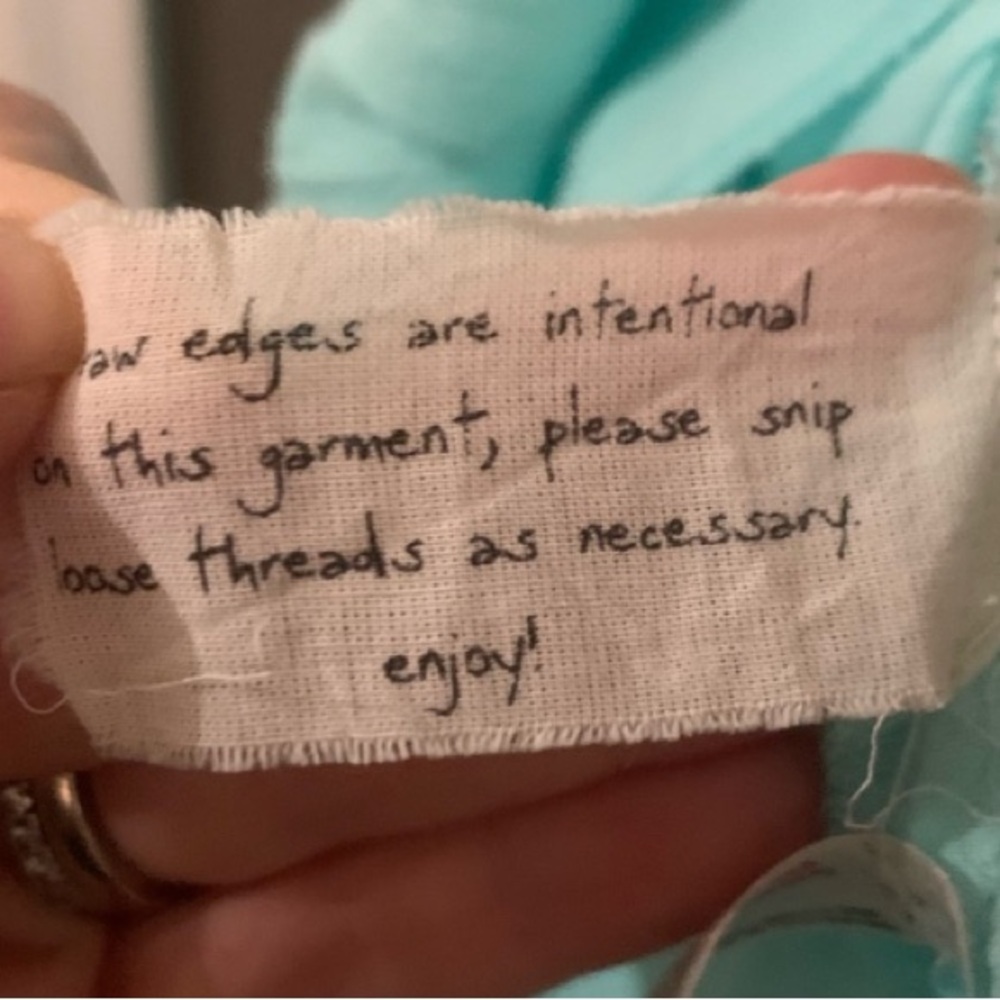 raw edges are intentional
on this garment, please snip
loose threads as necessary.
enjoy!